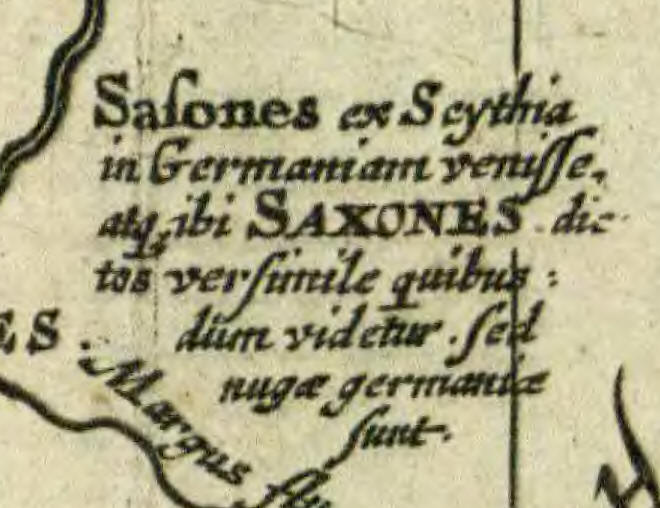 Saſones ex Scythia
in Germaniam veniſſe,
atq; ibi SAXONES dic-
tos verſimile quibus:
dam videtur. ſed
nugæ germaniæ
ſunt.
ES.
Margus flu
H